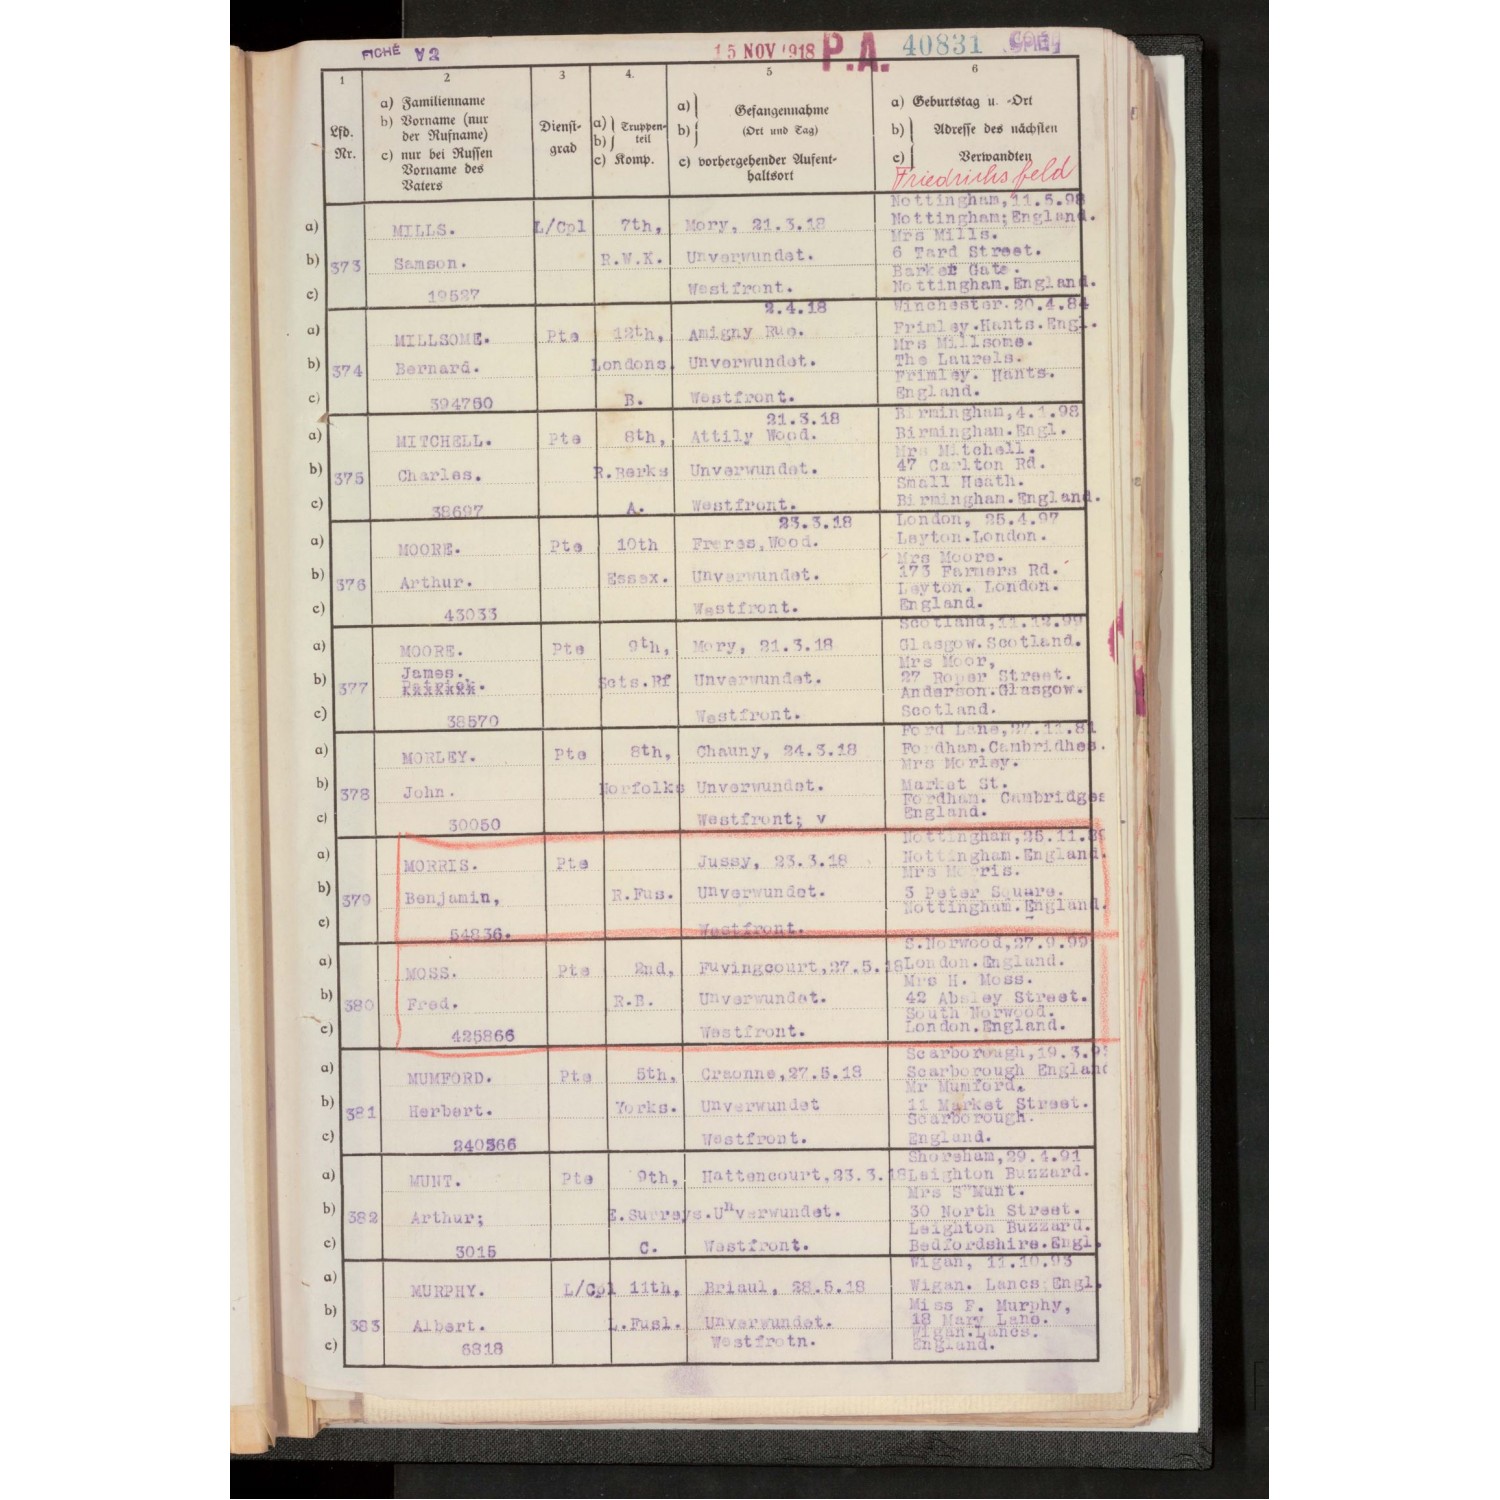 FICHÉ V2 15 NOV 1918 P.A. 40831
1 2 3 4. 5 6
Lfd. Nr.
a) Familienname
b) Vorname (nur
der Rufname)
c) nur bei Russen
Vorname des
Vaters
Dienst-
grad
a) Truppen-
b) teil
c) Komp.
a) Gefangennahme
b) (Ort und Tag)
c) vorhergehender Aufent-
haltsort
a) Geburtstag u. -Ort
b) Adresse des nächsten
c) Verwandten
Friedrichsfeld
Nottingham, 11.5.98
a) MILLS. L/Cpl 7th, Mory, 21.3.18 Nottingham; England.
Mrs Mills.
b) 373 Samson. R.W.K. Unverwundet. 6 Tard Street.
Barker Gate.
c) 19527 Westfront. Nottingham.England.
2.4.18 Winchester.20.4.84
a) MILLSOME. Pte 12th, Amigny Rue. Frimley.Hants.Engl.
Mrs Millsome.
b) 374 Bernard. Londons. Unverwundet. The Laurels.
Frimley. Hants.
c) 394750 B. Westfront. England.
21.3.18 Birmingham,4.1.98
a) MITCHELL. Pte 8th, Attily Wood. Birmingham.Engl.
Mrs Mitchell.
b) 375 Charles. R.Berks Unverwundet. 47 Carlton Rd.
Small Heath.
c) 38697 A. Westfront. Birmingham.England.
23.3.18 London, 25.4.97
a) MOORE. Pte 10th Freres,Wood. Leyton.London.
Mrs Moore.
b) 376 Arthur. Essex. Unverwundet. 173 Farmers Rd.
Leyton. London.
c) 43033 Westfront. England.
Scotland,11.12.99
a) MOORE. Pte 9th, Mory, 21.3.18 Glasgow.Scotland.
James. Mrs Moor,
b) 377 Scts.Rf Unverwundet. 27 Roper Street.
Anderson.Glasgow.
c) 38570 Westfront. Scotland.
Ford Lane,27.11.81
a) MORLEY. Pte 8th, Chauny, 24.3.18 Fordham.Cambridhes.
Mrs Morley.
b) 378 John. Norfolks Unverwundet. Market St.
Fordham. Cambridges
c) 30050 Westfront; v England.
Nottingham,25.11.89
a) MORRIS. Pte Jussy, 23.3.18 Nottingham.England.
Mrs Morris.
b) 379 Benjamin, R.Fus. Unverwundet. 3 Peter Square.
Nottingham.England.
c) 54836. Westfront.
S.Norwood,27.9.99
a) MOSS. Pte 2nd, Fuvingcourt,27.5.18 London.England.
Mrs H. Moss.
b) 380 Fred. R.B. Unverwundet. 42 Absley Street.
South Norwood.
c) 425866 Westfront. London.England.
Scarborough,19.3.9
a) MUMFORD. Pte 5th, Craonne,27.5.18 Scarborough England
Mr Mumford.
b) 381 Herbert. Yorks. Unverwundet 11 Market Street.
Scarborough.
c) 240366 Westfront. England.
Shoreham,29.4.91
a) MUNT. Pte 9th, Hattencourt,23.3.18 Leighton Buzzard.
Mrs S"Munt.
b) 382 Arthur; E.Surreys. Unverwundet. 30 North Street.
Leighton Buzzard.
c) 3015 C. Westfront. Bedfordshire.Engl.
Wigan, 11.10.93
a) MURPHY. L/Cpl 11th, Briaul, 28.5.18 Wigan. Lancs Engl.
Miss F. Murphy,
b) 383 Albert. L.Fusl. Unverwundet. 18 Mary Lane.
Wigan.Lancs.
c) 6818 Westfrotn. England.